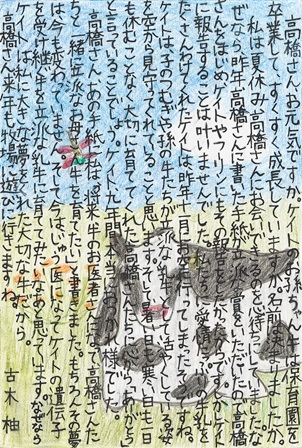 高橋さん、お元気ですか。ケイトのお孫ちゃん牛は保育園を
卒業して、すくすく成長していますか。名前は決まりましたか。
私は夏休みに高橋さんにお会いできるのを心待ちにしていました。
なぜなら、昨年高橋さんに書いた手紙が立派な賞をいただいたので高橋さ
んをはじめ、ケイトやプリンにもその報告をしたかったからです。しかしケイト
に報告することは叶いませんでした。私たちに愛情たっぷりの
たさんくれたケイトは昨年十一月にお空に行ってしまったのですね。
ケイトは子のつむぎや孫の牛たちが立派な乳牛として活やくしている姿
を空から見守ってくれていることと思います。そして暑い日も寒い日も一日
も休むことなく大切に育ててくれた高橋さんたちに心からありがとう
と言っていることでしょう。ケイト、九年間本当におつかれ様でした。
高橋さん、あの手紙には、将来牛のお医者さんになって高橋さんた
ちと一緒に立派なお母さん牛を育てたいと書きました。もちろんその夢
は今も変わっていません。そして今は、じゅう医になってケイトの遺伝子
を受け継ぐ牛を立派な乳牛に育ててみたいなあと思っています。なぜなら
ケイトは私に大きな夢をくれた大切な牛だから。
高橋さん、来年も牧場へ遊びに行きますね。
古木 柚